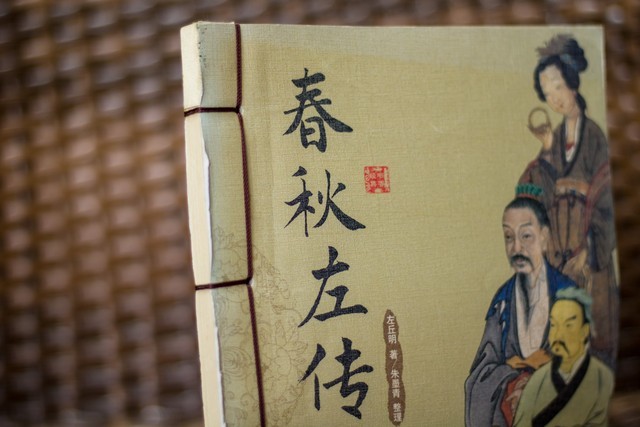 春秋左传
左丘明 著/朱墨青 整理